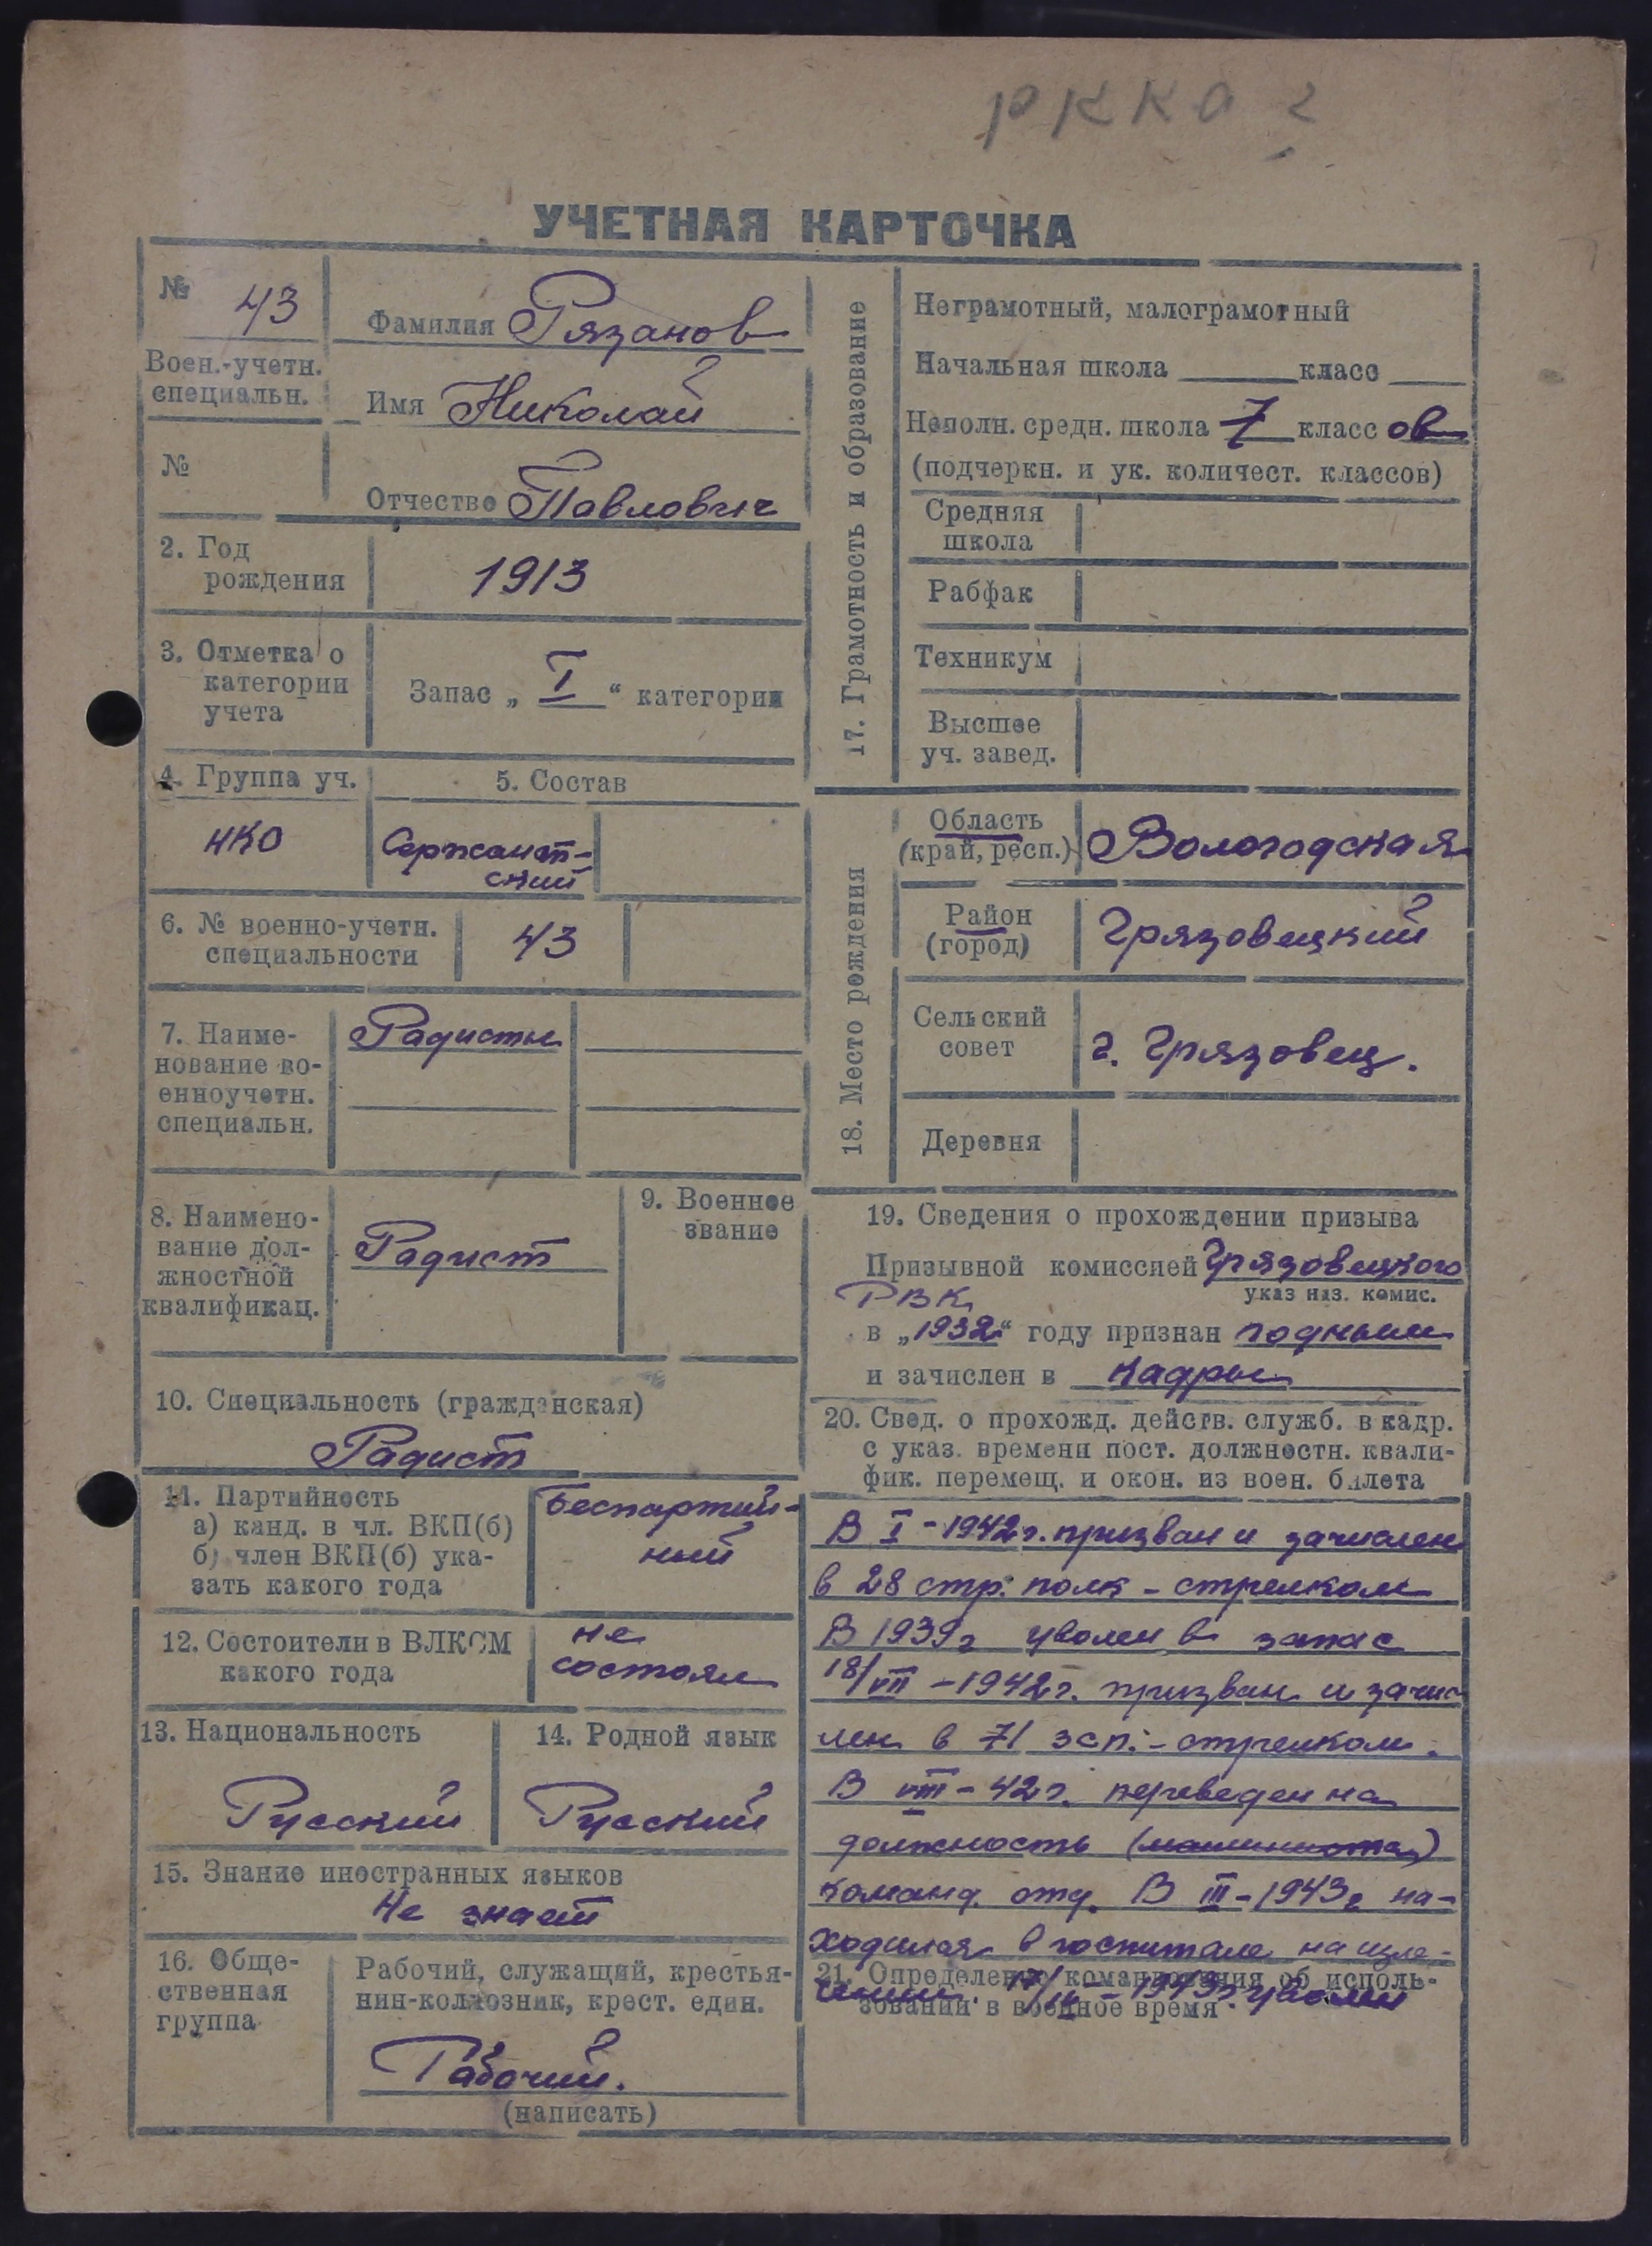 РККА
УЧЕТНАЯ КАРТОЧКА
№ 43
Воен.-учетн.
специальн.
№
Фамилия Рязанов
Имя Николай
Отчество Павлович
2. Год
рождения
1913
3. Отметка о
категории
учета
Запас „ I “ категории
4. Группа уч.
НКО
5. Состав
Сержант-
ский
6. № военно-учетн.
специальности
43
7. Наиме-
нование во-
енноучетн.
специальн.
Радисты
8. Наимено-
вание дол-
жностной
квалификац.
Радист
9. Военное
звание
10. Специальность (гражданская)
Радист
11. Партийность
а) канд. в чл. ВКП(б)
б) член ВКП(б) ука-
зать какого года
Беспартий-
ный
12. Состоители в ВЛКСМ
какого года
не
состоял
13. Национальность
Русский
14. Родной язык
Русский
15. Знание иностранных языков
Не знает
16. Обще-
ственная
группа
Рабочий, служащий, крестья-
нин-колхозник, крест. един.
Рабочий.
(написать)
17. Грамотность и образование
Неграмотный, малограмотный
Начальная школа ____ класс ____
Неполн. средн. школа 7 класс ов
(подчеркн. и ук. количест. классов)
Средняя
школа
Рабфак
Техникум
Высшее
уч. завед.
18. Место рождения
Область
(край, респ.)
Вологодская
Район
(город)
Грязовецкий
Сельский
совет
г. Грязовец.
Деревня
19. Сведения о прохождении призыва
Призывной комиссией Грязовецкого
РВК указ наз. комис.
в „1932“ году признан годным
и зачислен в кадры
20. Свед. о прохожд. действ. служб. в кадр.
с указ. времени пост. должностн. квали-
фик. перемещ. и окон. из воен. билета
В I-1942г. призван и зачислен
в 28 стр. полк - стрелком
В 1939г уволен в запас
18/VII-1942г. призван и зачис
лен в 71 зсп. - стрелком.
В VIII-42г. переведен на
должность (машиниста)
команд. отд. В III-1943г на-
ходился в госпитале на изле-
чении. 17/IV-1943г. уволен
21. Определение командования об исполь-
зовании в военное время